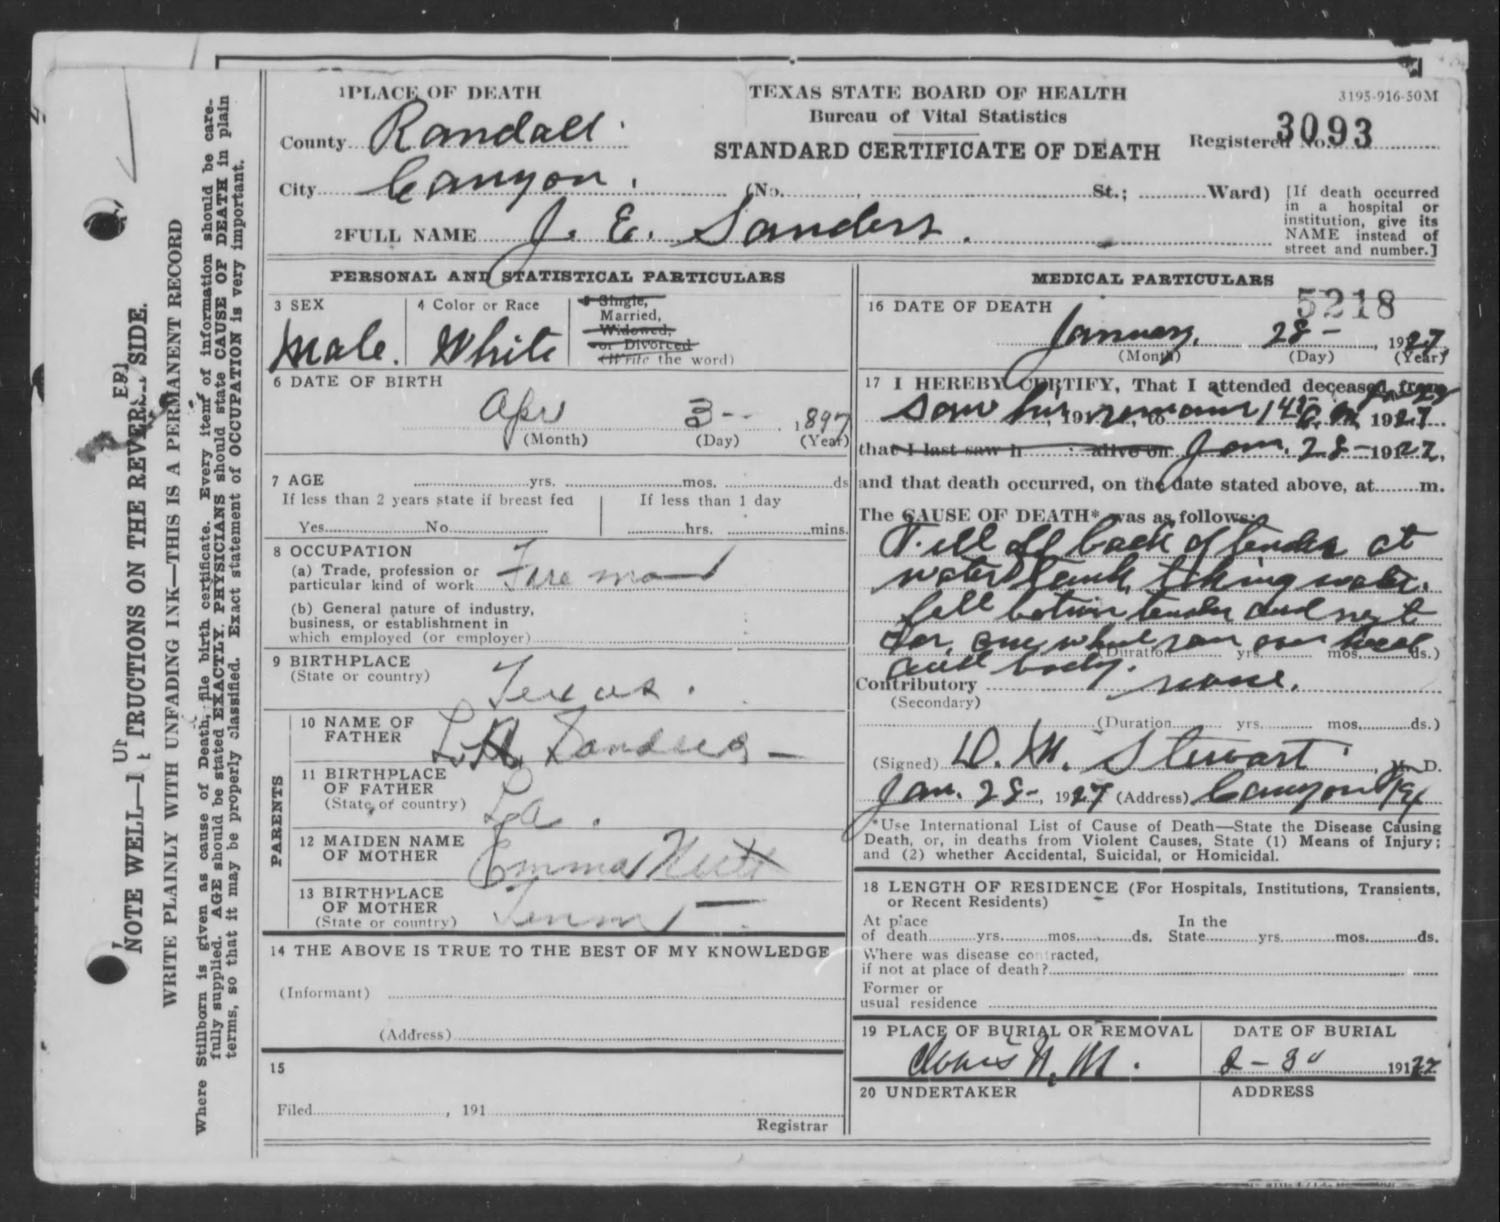 1 PLACE OF DEATH
TEXAS STATE BOARD OF HEALTH
3195-916-50M
Bureau of Vital Statistics
County Randall
STANDARD CERTIFICATE OF DEATH
Registered No. 3093
City Canyon. (No. , St.; Ward)
[If death occurred
in a hospital or
institution, give its
NAME instead of
street and number.]
2 FULL NAME J. E. Sanders.
PERSONAL AND STATISTICAL PARTICULARS
3 SEX
Male.
4 Color or Race
White
Single,
Married,
Widowed,
or Divorced
(Write the word)
6 DATE OF BIRTH
Apr 3 - 1897
(Month) (Day) (Year)
7 AGE yrs. mos. ds
If less than 2 years state if breast fed
Yes No
If less than 1 day
hrs. mins.
8 OCCUPATION
(a) Trade, profession or
particular kind of work Fireman
(b) General nature of industry,
business, or establishment in
which employed (or employer)
9 BIRTHPLACE
(State or country) Texas.
PARENTS
10 NAME OF
FATHER Sanders -
11 BIRTHPLACE
OF FATHER
(State or country) La.
12 MAIDEN NAME
OF MOTHER Emma
13 BIRTHPLACE
OF MOTHER
(State or country) Tenn -
14 THE ABOVE IS TRUE TO THE BEST OF MY KNOWLEDGE
(Informant)
(Address)
15
Filed , 191
Registrar
MEDICAL PARTICULARS
5218
16 DATE OF DEATH
January. 28 - 1927
(Month) (Day) (Year)
17 I HEREBY CERTIFY, That I attended deceased from
saw his , 191 remains , to 1927
that I last saw h alive on Jan. 28 - 19
and that death occurred, on the date stated above, at m.
The CAUSE OF DEATH* was as follows:
Fell off back of tender at
water tank taking water.
fell between tender and next
car, one wheel ran over head
and body.
(Duration yrs. mos. ds.)
Contributory none.
(Secondary)
(Duration yrs. mos. ds.)
(Signed) D. M. Stewart , M. D.
Jan. 28 -, 1927 (Address) Canyon Tex
*Use International List of Cause of Death—State the Disease Causing
Death, or, in deaths from Violent Causes, State (1) Means of Injury;
and (2) whether Accidental, Suicidal, or Homicidal.
18 LENGTH OF RESIDENCE (For Hospitals, Institutions, Transients,
or Recent Residents)
At place
of death yrs. mos. ds.
In the
State yrs. mos. ds.
Where was disease contracted,
if not at place of death?
Former or
usual residence
19 PLACE OF BURIAL OR REMOVAL
Clovis N. M.
DATE OF BURIAL
191
20 UNDERTAKER
ADDRESS
NOTE WELL—I TRUCTIONS ON THE REVERS SIDE.
WRITE PLAINLY WITH UNFADING INK—THIS IS A PERMANENT RECORD
Where Stillborn is given as cause of Death, file birth certificate. Every item of information should be care-
fully supplied. AGE should be stated EXACTLY. PHYSICIANS should state CAUSE OF DEATH in plain
terms, so that it may be properly classified. Exact statement of OCCUPATION is very important.